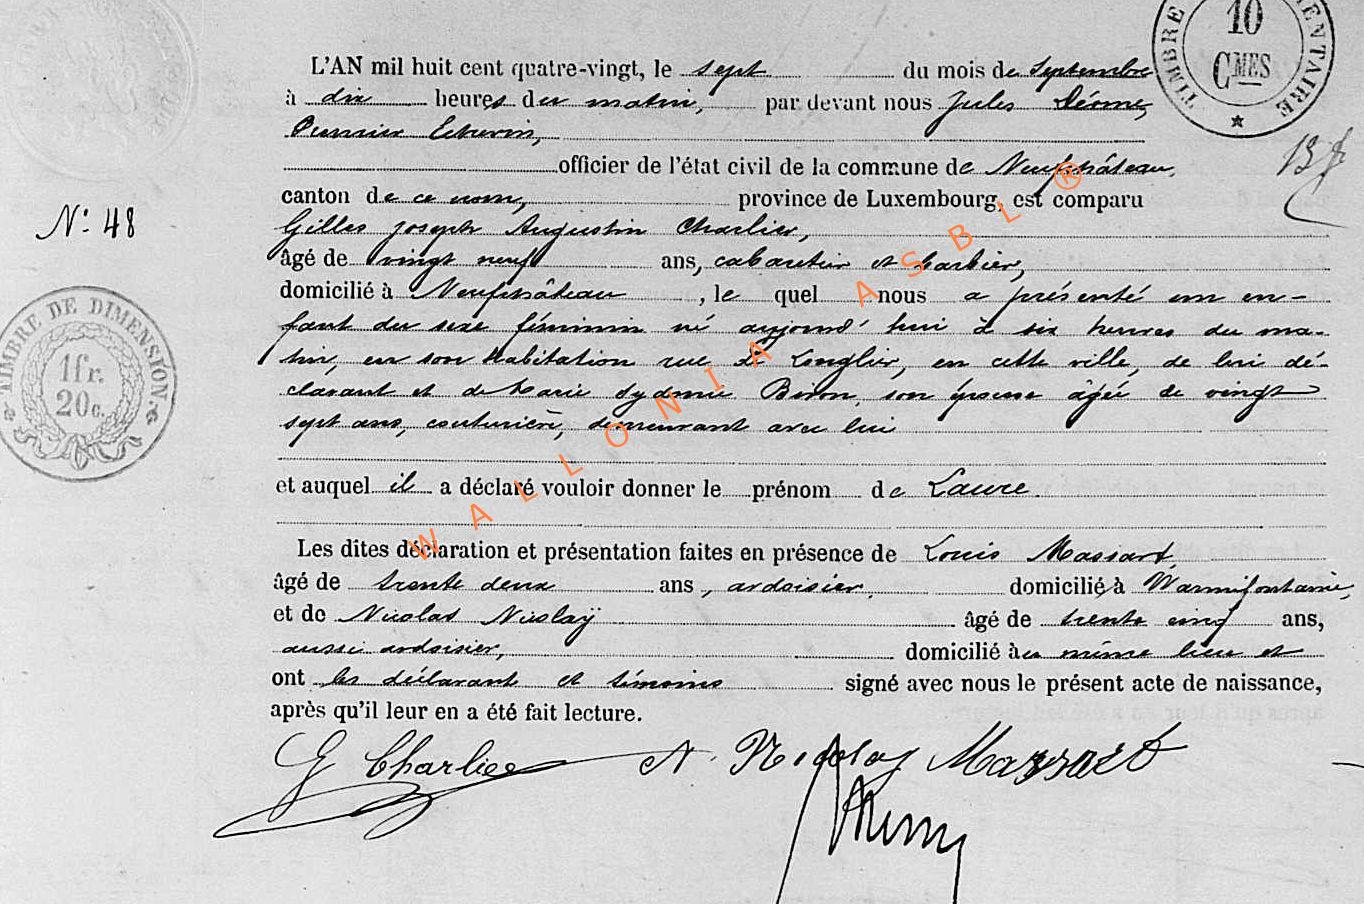 L'AN mil huit cent quatre-vingt, le sept du mois de Septembre
à dix heures du matin, par devant nous Jules
Premier Echevin,
officier de l'état civil de la commune de Neufchâteau,
canton de ce nom, province de Luxembourg, est comparu
N° 48
Gilles Joseph Augustin Charlier,
âgé de vingt neuf ans, cabaretier et barbier,
domicilié à Neufchâteau, le quel nous a présenté un en-
fant du sexe féminin né aujourd'hui à six heures du ma-
tin, en son habitation rue de Longlier, en cette ville, de lui dé-
clarant et de Marie Sydonie Biron, son épouse âgée de vingt
sept ans, couturière, demeurant avec lui
et auquel il a déclaré vouloir donner le prénom de Laure.
Les dites déclaration et présentation faites en présence de Louis Massart,
âgé de trente deux ans, ardoisier, domicilié à Warmifontaine,
et de Nicolas Nicolaÿ âgé de trente cinq ans,
aussi ardoisier, domicilié au même lieu et
ont les déclarant et témoins signé avec nous le présent acte de naissance,
après qu'il leur en a été fait lecture.
G Charlier N. Nicolay Massart
TIMBRE DE DIMENSION.
1 fr.
20 c.
TIMBRE
10
CMES
WALLONIA ASBL ®